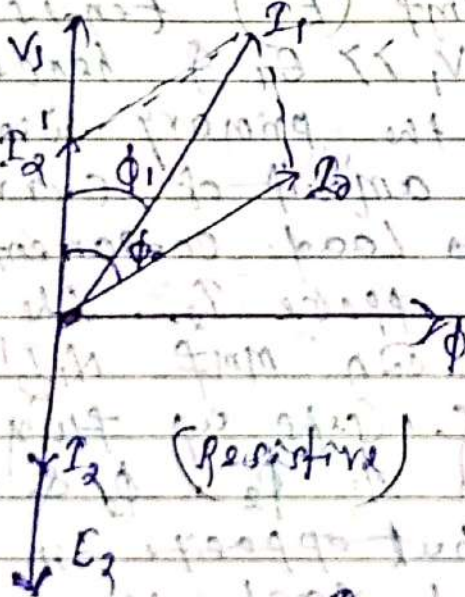 I₁
V₁
I₂'
ϕ₁
I₀
ϕ₀
ϕ
I₂
(Resistive)
E₂